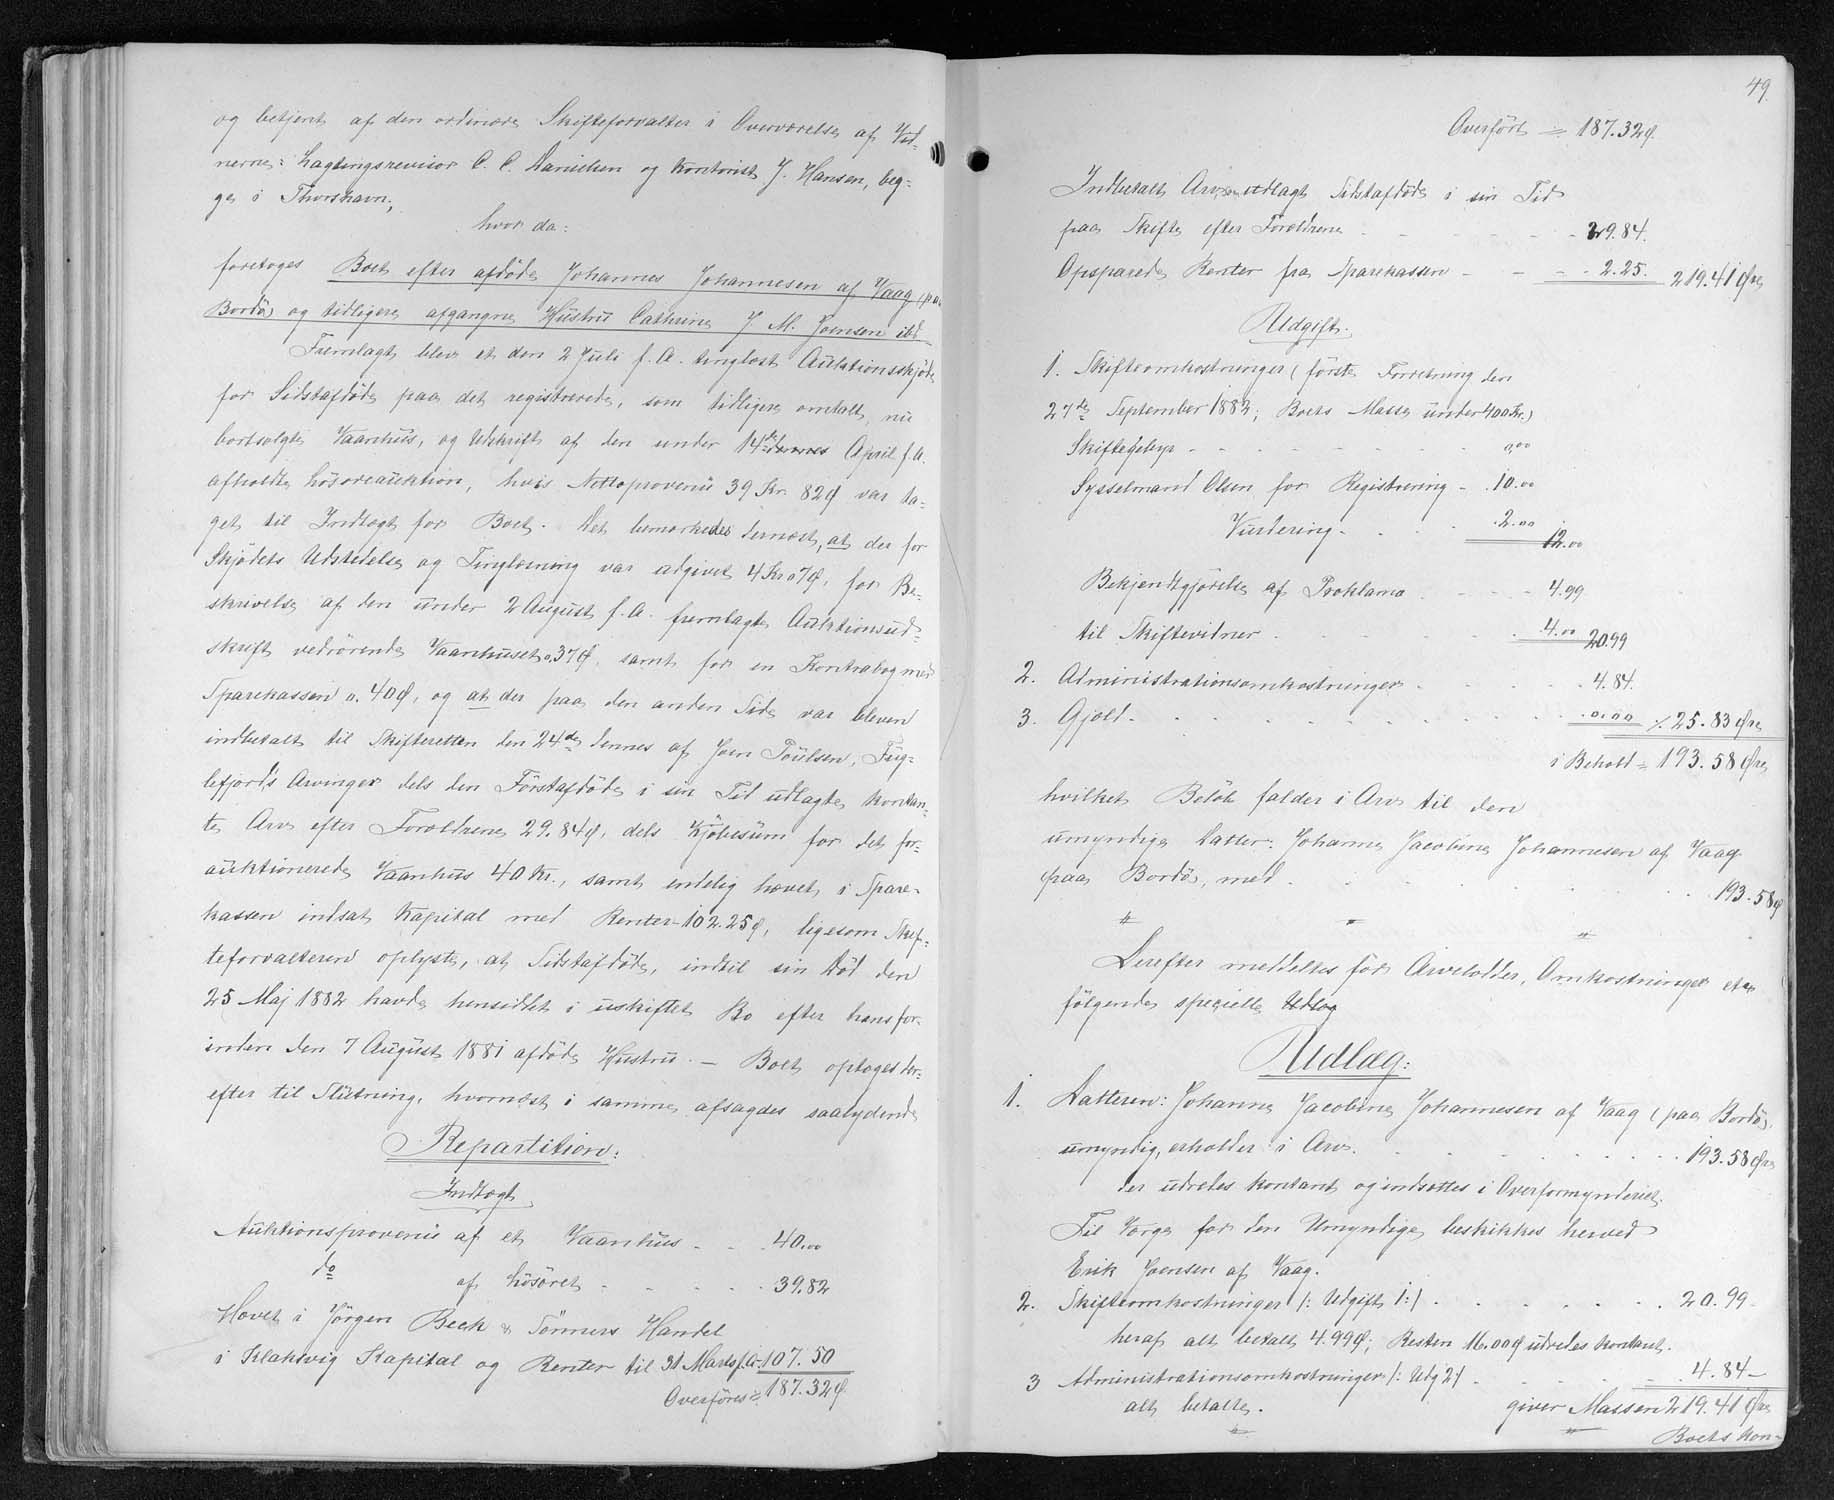 og betjent af den ordinære Skifteforvalter i Overværelse af Vid-
nerne: Lagtingsrevisor C. C. Danielsen og Kontorist J. Hansen, beg-
ge i Thorshavn,
hvor da:
foretoges Boet efter afdøde Johannes Johannesen af Vaag (paa
Bordö) og tidligere afgangne Hustru Cathrine J M. Joensen ibd
Fremlagt blev et den 2 Juli f. A. tinglæst Auktionsskjöde
for Sidstafdøde paa det registrerede, som tidligere omtalt, nu
bortsolgte Vaanhus, og Udskrift af den under 14de April f. A.
afholdte Lösöreauktion, hvis Nettoprovenü 39 Kr. 82 Ø var ta-
get til Indtægt for Boet. Det bemærkedes dernæst, at der for
Skjödets Udstedelse og Tinglæsning var udgivet 4 Kr 07 Ø, for Be-
skrivelse af den under 2 August f. A. fremlagte Auktionsud-
skrift vedrörende Vaanhuset 0,37 Ø, samt for en Kontrabog med
Sparekassen 0.40 Ø, og at der paa den anden Side var bleven
indbetalt til Skifteretten den 24de dennes af Joen Poulsen, Fug-
lefjords Arvinger dels den Förstafdøde i sin Tid udlagte kontan-
te Arv efter Forældrene 29.84 Ø, dels Kjöbesum for det for-
auktionerede Vaanhus 40 Kr., samt endelig hævet i Spare-
kassen indsat Kapital med Renter 102.25 Ø, ligesom Skif-
teforvalteren oplyste, at Sidstafdøde, indtil sin Död den
25 Maj 1882 havde hensiddet i uskiftet Bo efter hans for-
inden den 7 August 1881 afdøde Hustru. — Boet optoges der-
efter til Slutning, hvornæst i samme afsagdes saalydende
Repartition:
Indtægt
Auktionsprovenü af et Vaanhus - - 40.00
do af Lösöret - - - - 39.82
Hævet i Jörgen Beck & Sønners Handel
i Klaksvig Kapital og Renter til 31 Marts f. A. 107.50
Overføres = 187.32 Ø
49.
Overfört = 187.32 Ø.
Indbetalt Arv, udlagt Sidstafdøde i sin Tid
paa Skifte efter Forældrene - - - - 29.84.
Opsparede Renter fra Sparekassen - - - 2.25. 219.41 Øre
Udgift.
1. Skifteomkostninger (förste Forretning den
27de September 1882; Boets Masse under 400 Kr.)
Skiftegebyr - - - - - - 0,00
Sysselmand Olsen for Registrering - 10.00
Vurdering - - - 2.00 12.00
Bekjendtgjörelse af Proklama - - - 4.99
til Skiftevidner - - - - 4.00 20.99
2. Administrationsomkostninger - - - 4.84.
3. Gjæld - - - - - - 0.00 ./. 25.83 Øre
i Behold = 193.58 Øre
hvilket Beløb falder i Arv til den
umyndige Datter: Johanne Jacobine Johannesen af Vaag
paa Bordö, med - - - - 193.58 Ø
Derefter meddeltes for Arvelodder, Omkostninger etc
følgende specielle Udlæg
Udlæg:
1. Datteren: Johanne Jacobine Johannesen af Vaag (paa Bordö)
umyndig, erholder i Arv - - - - 193.58 Øre
der udredes kontant og indsættes i Overformynderiet.
Til Værge for den Umyndige beskikkes herved
Erik Joensen af Vaag.
2. Skifteomkostninger /: Udgift 1:/ - - - 20.99 -
heraf alt betalt 4.99 Ø; Resten 16.00 Ø udredes kontant.
3 Administrationsomkostninger /: Udg 2/ - - - 4.84 —
alt betalte. giver Massen 219.41 Øre
Boets kon-